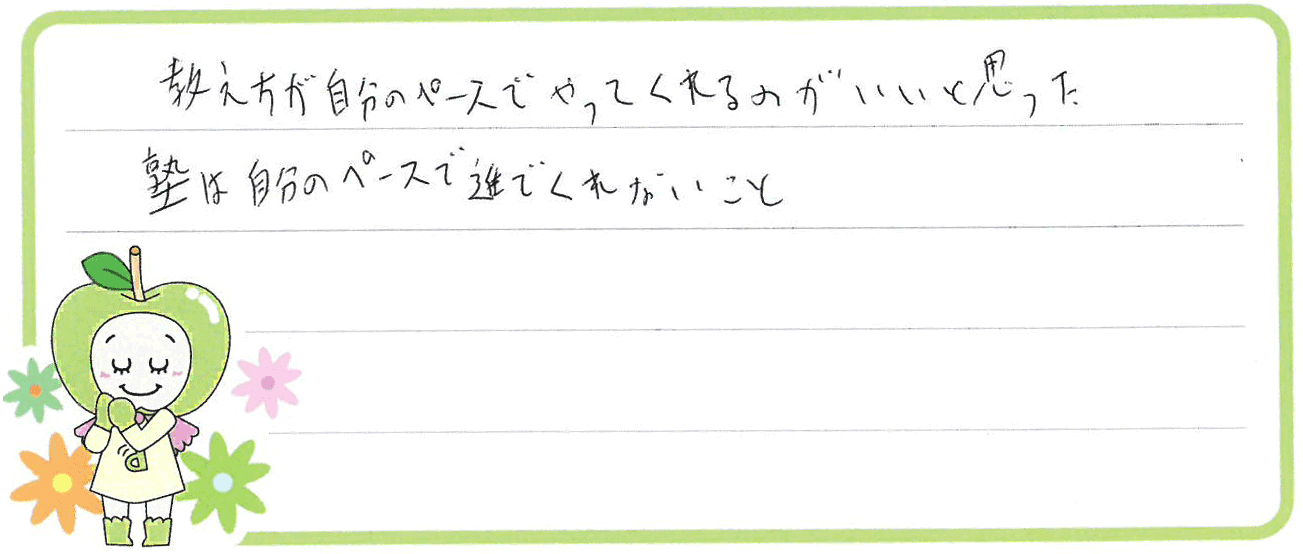 教え方が自分のペースでやってくれるのがいいと思った
塾は自分のペースで進でくれないこと